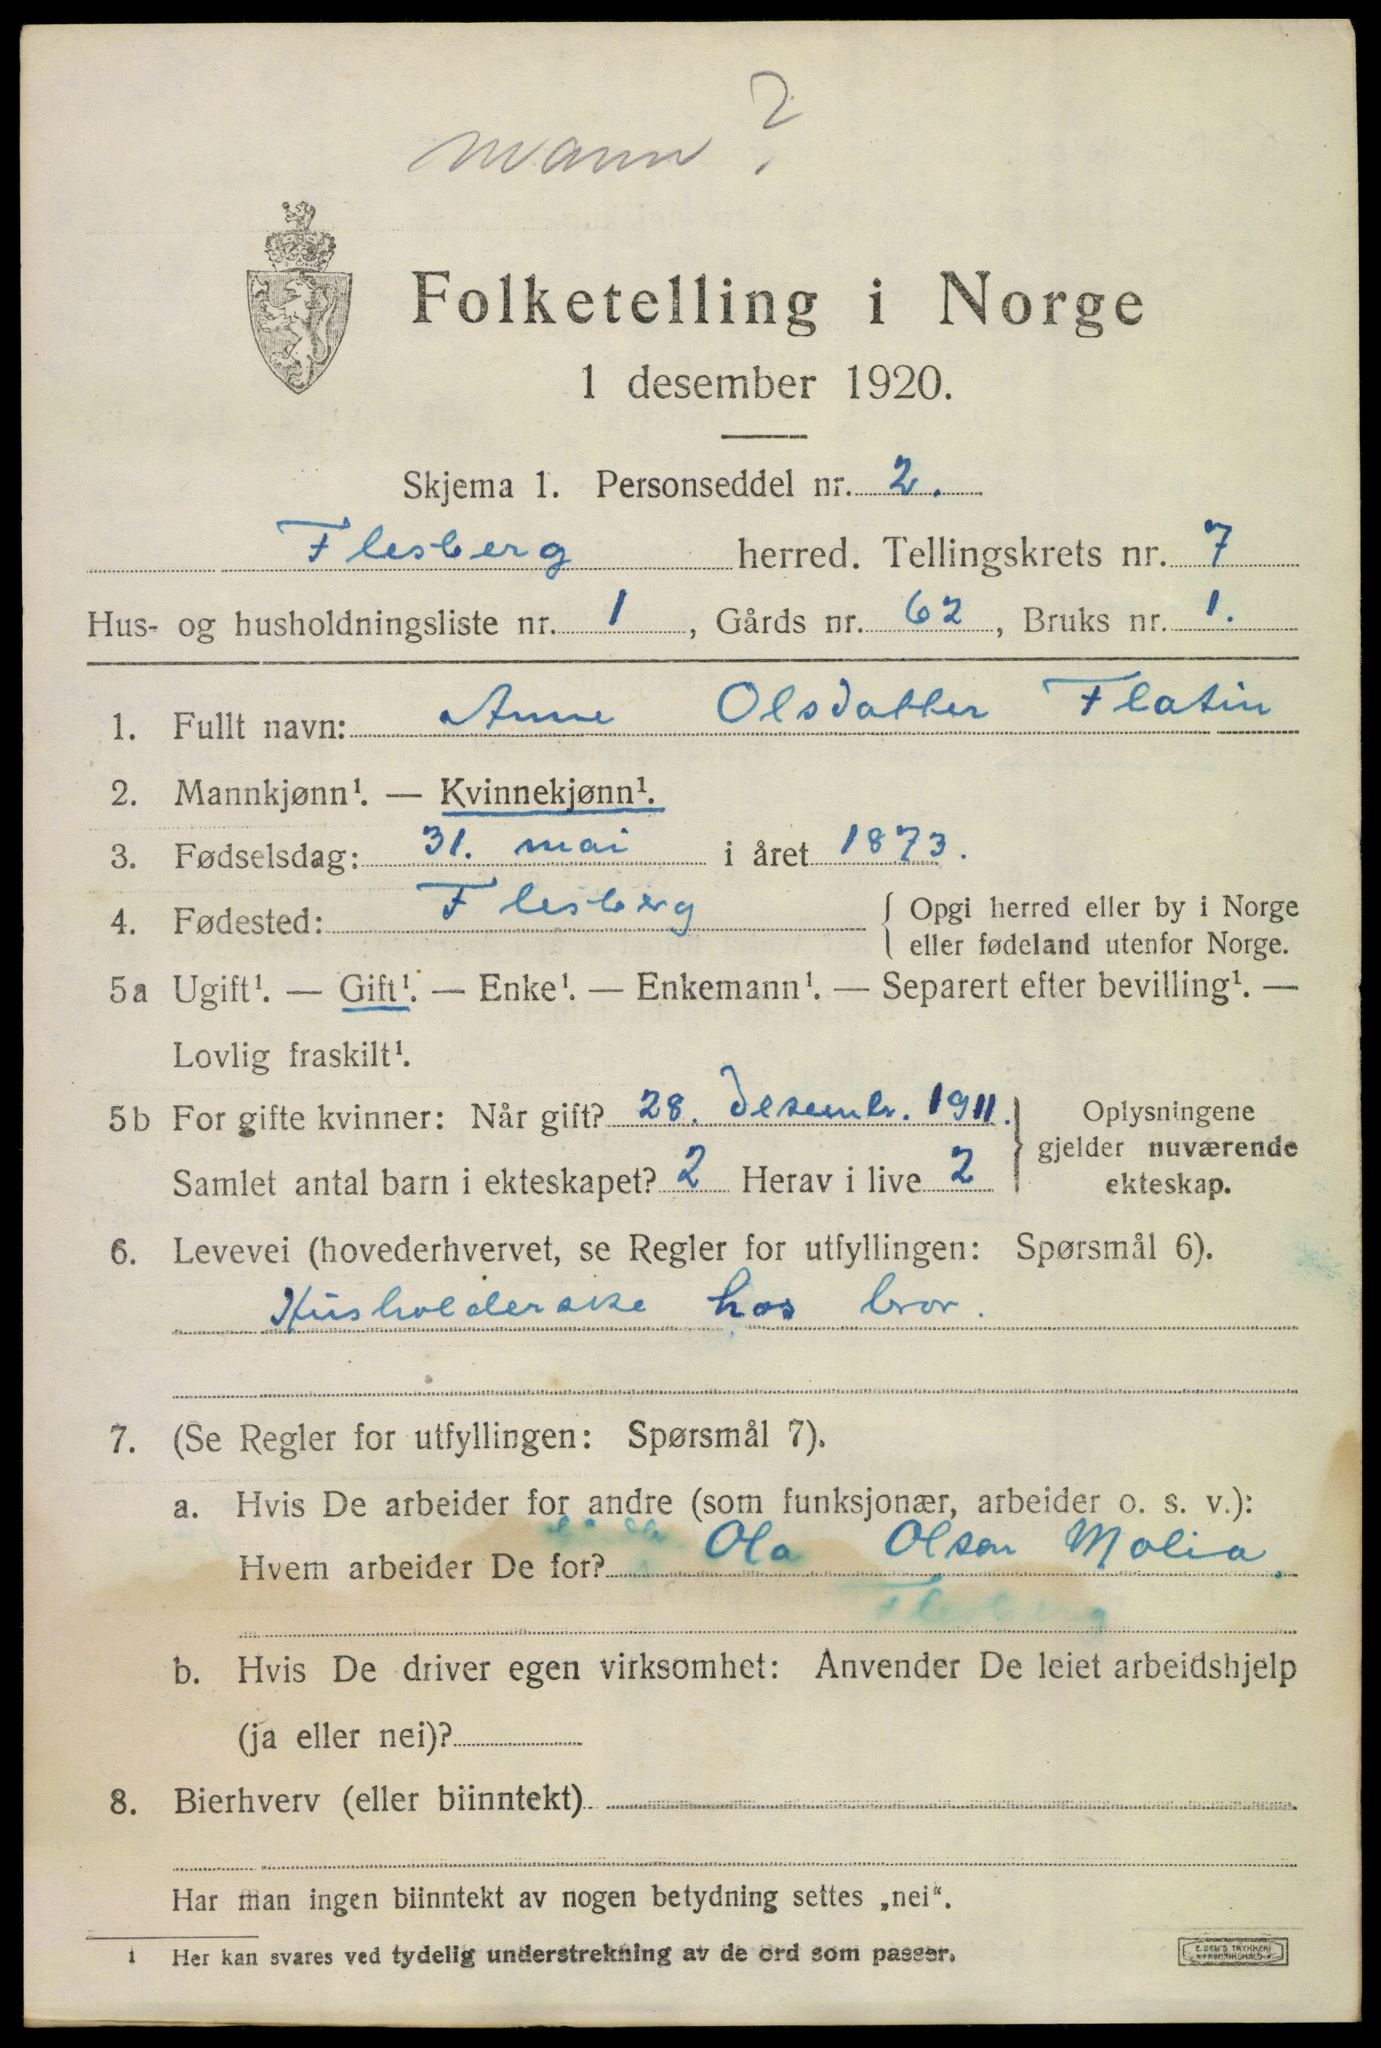 mann?
Folketelling i Norge
1 desember 1920.
Skjema 1. Personseddel nr. 2.
Flesberg herred. Tellingskrets nr. 7
Hus- og husholdningsliste nr. 1, Gårds nr. 62, Bruks nr. 1.
1. Fullt navn: Anne Olsdatter Flatin
2. Mannkjønn¹. — Kvinnekjønn¹.
3. Fødselsdag: 31. mai i året 1873.
4. Fødested: Flesberg { Opgi herred eller by i Norge
eller fødeland utenfor Norge.
5a Ugift¹. — Gift¹. — Enke¹. — Enkemann¹. — Separert efter bevilling¹. —
Lovlig fraskilt¹.
5b For gifte kvinner: Når gift? 28. desembr. 1911. } Oplysningene
gjelder nuværende
Samlet antal barn i ekteskapet? 2 Herav i live 2 ekteskap.
6. Levevei (hovederhvervet, se Regler for utfyllingen: Spørsmål 6).
Husholderske hos bror.
7. (Se Regler for utfyllingen: Spørsmål 7).
a. Hvis De arbeider for andre (som funksjonær, arbeider o. s. v.):
Hvem arbeider De for? Ola Olsen Molia,
Flesberg
b. Hvis De driver egen virksomhet: Anvender De leiet arbeidshjelp
(ja eller nei)?
8. Bierhverv (eller biinntekt)
Har man ingen biinntekt av nogen betydning settes „nei“.
1 Her kan svares ved tydelig understrekning av de ord som passer.
E. SEM'S TRYKKERI
FREDRIKSHALD